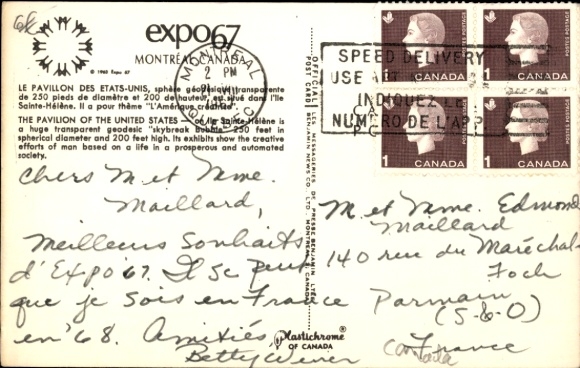 6k
expo67
MONTRÉAL, CANADA
© 1963 Expo 67
LE PAVILLON DES ETATS-UNIS, sphère géodésique transparente
de 250 pieds de diamètre et 200 de hauteur, est situé dans l'île
Sainte-Hélène. Il a pour thème "L'Amérique créatrice".
THE PAVILION OF THE UNITED STATES on Ile Sainte-Hélène is
a huge transparent geodesic "skybreak bubble" 250 feet in
spherical diameter and 200 feet high. Its exhibits show the creative
efforts of man based on a life in a prosperous and automated
society.
Chers M et Mme.
Maillard,
Meilleurs Souhaits
d'Expo 67. Il se peut
que je sois en France
en '68. Amitiés,
Betty Wever
MONTREAL
2 PM
SPEED DELIVERY
USE APT
INDIQUEZ LE
NUMÉRO DE L'APP
CANADA
1
CANADA
1
CANADA
1
CANADA
1
POST CARD
Plastichrome®
OF CANADA
M. et Mme. Edmond
Maillard
140 rue du Maréchal
Foch
Parmain
(S-&-O)
France
Canada